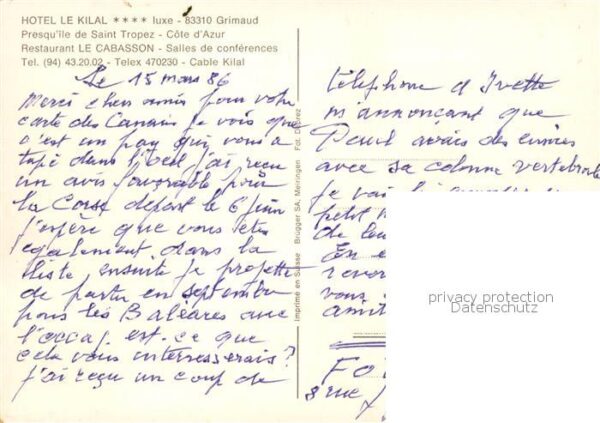 HOTEL LE KILAL **** luxe - 83310 Grimaud
Presqu'île de Saint Tropez - Côte d'Azur
Restaurant LE CABASSON - Salles de conférences
Tel. (94) 43.20.02 - Telex 470230 - Cable Kilal
Le 15 mars 86
Merci chers amis pour votre
carte des Canaries je vois que
c'est un pays qui vous a
tapé dans l'oeil j'ai reçu
un avis favorable pour
la Corse départ le 6 juin
j'espère que vous êtes
également dans la
liste ensuite je projette
de partir en septembre
pour les Baléares avec
l'accaj. est-ce que
cela vous interesserais?
j'ai reçu un coup de
Imprimé en Suisse Brügger SA, Meiringen Fot. Deprez
téléphone d'Yvette
m'annonçant que
Paul avais des ennuis
avec sa colonne vertebrale
je vais
petit
de leu
En
revo
vous
amit
8 rue
privacy protection
Datenschutz